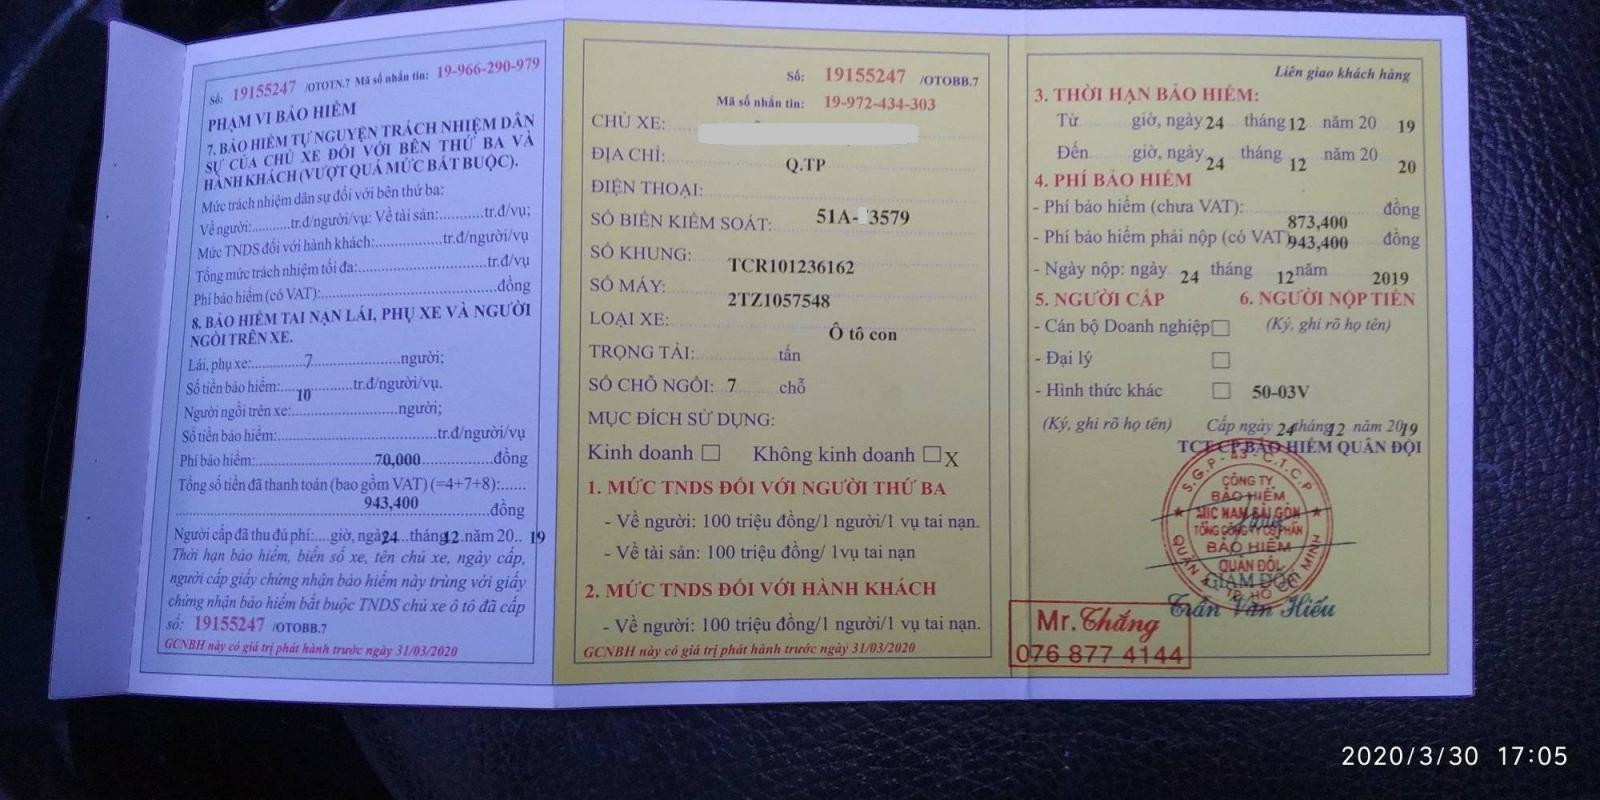 Số: 19155247 /OTOTN.7 Mã số nhắn tin: 19-966-290-979
PHẠM VI BẢO HIỂM
7. BẢO HIỂM TỰ NGUYỆN TRÁCH NHIỆM DÂN
SỰ CỦA CHỦ XE ĐỐI VỚI BÊN THỨ BA VÀ
HÀNH KHÁCH (VƯỢT QUÁ MỨC BẮT BUỘC).
Mức trách nhiệm dân sự đối với bên thứ ba:
Về người:..........tr.đ/người/vụ: Về tài sản:..........tr.đ/vụ;
Mức TNDS đối với hành khách:..............tr.đ/người/vụ
Tổng mức trách nhiệm tối đa:..........................tr.đ/vụ
Phí bảo hiểm (có VAT):...................................đồng
8. BẢO HIỂM TAI NẠN LÁI, PHỤ XE VÀ NGƯỜI
NGỒI TRÊN XE.
Lái, phụ xe:..........7..................người;
Số tiền bảo hiểm:....10........tr.đ/người/vụ.
Người ngồi trên xe:......................người;
Số tiền bảo hiểm:................................tr.đ/người/vụ
Phí bảo hiểm:.................70,000..............đồng
Tổng số tiền đã thanh toán (bao gồm VAT) (=4+7+8):......
943,400 đồng
Người cấp đã thu đủ phí:....giờ, ngày 24...tháng 12.năm 20.. 19
Thời hạn bảo hiểm, biển số xe, tên chủ xe, ngày cấp,
người cấp giấy chứng nhận bảo hiểm này trùng với giấy
chứng nhận bảo hiểm bắt buộc TNDS chủ xe ô tô đã cấp
số: 19155247 /OTOBB.7
GCNBH này có giá trị phát hành trước ngày 31/03/2020
Số: 19155247 /OTOBB.7
Mã số nhắn tin: 19-972-434-303
CHỦ XE:
ĐỊA CHỈ: Q.TP
ĐIỆN THOẠI:
SỐ BIỂN KIỂM SOÁT: 51A- 3579
SỐ KHUNG: TCR101236162
SỐ MÁY: 2TZ1057548
LOẠI XE: Ô tô con
TRỌNG TẢI: tấn
SỐ CHỖ NGỒI: 7 chỗ
MỤC ĐÍCH SỬ DỤNG:
Kinh doanh ☐ Không kinh doanh ☐ X
1. MỨC TNDS ĐỐI VỚI NGƯỜI THỨ BA
- Về người: 100 triệu đồng/1 người/1 vụ tai nạn.
- Về tài sản: 100 triệu đồng/ 1vụ tai nạn
2. MỨC TNDS ĐỐI VỚI HÀNH KHÁCH
- Về người: 100 triệu đồng/1 người/1 vụ tai nạn.
GCNBH này có giá trị phát hành trước ngày 31/03/2020
Liên giao khách hàng
3. THỜI HẠN BẢO HIỂM:
Từ giờ, ngày 24 tháng 12 năm 20 19
Đến giờ, ngày 24 tháng 12 năm 20 20
4. PHÍ BẢO HIỂM
- Phí bảo hiểm (chưa VAT): 873,400 đồng
- Phí bảo hiểm phải nộp (có VAT) 943,400 đồng
- Ngày nộp: ngày 24 tháng 12 năm 2019
5. NGƯỜI CẤP 6. NGƯỜI NỘP TIỀN
- Cán bộ Doanh nghiệp ☐ (Ký, ghi rõ họ tên)
- Đại lý ☐
- Hình thức khác ☐ 50-03V
(Ký, ghi rõ họ tên) Cấp ngày 24 tháng 12 năm 2019
TCT CP BẢO HIỂM QUÂN ĐỘI
CÔNG TY
BẢO HIỂM
MIC NAM SÀI GÒN
TỔNG CÔNG TY CỔ PHẦN
BẢO HIỂM
QUÂN ĐỘI
GIÁM ĐỐC
Trần Văn Hiếu
Mr. Thắng
076 877 4144
2020/3/30 17:05